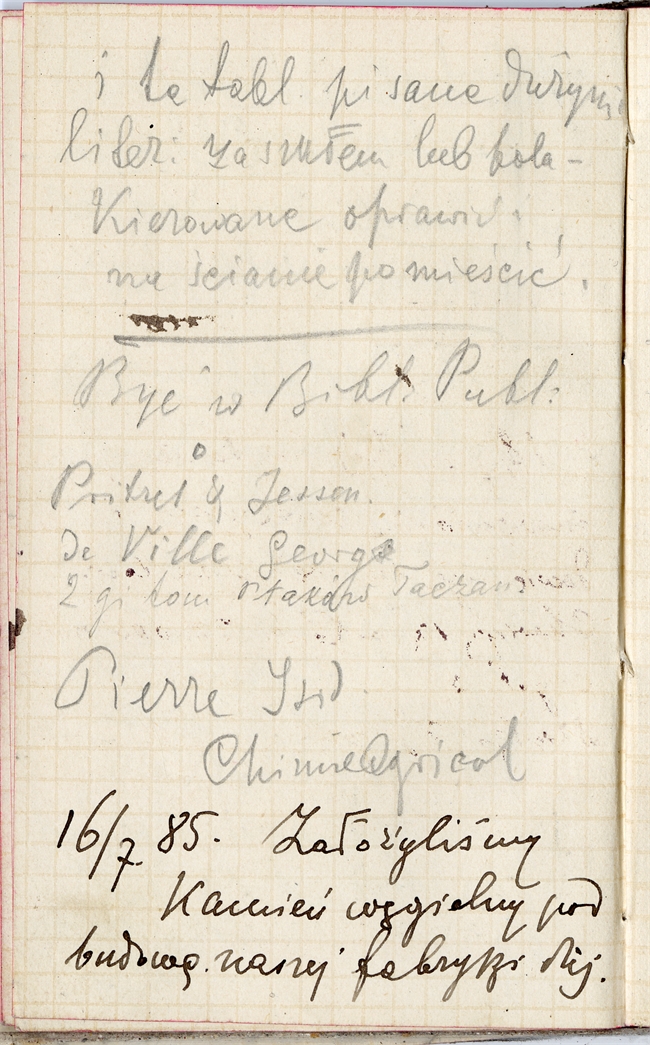 i te tabl. pisane dużymi
liter: za szkłem lub pola-
kierowane oprawić i
na ścianie pomieścić.
Być w Bibl: Publ:
Pritzel & Jesson.
de Ville George
2 gi tom Ptaków Taczan:
Pierre Isid
Chimie Agricol
16/7 85. Założyliśmy
Kamień węgielny pod
budowę naszej fabryki